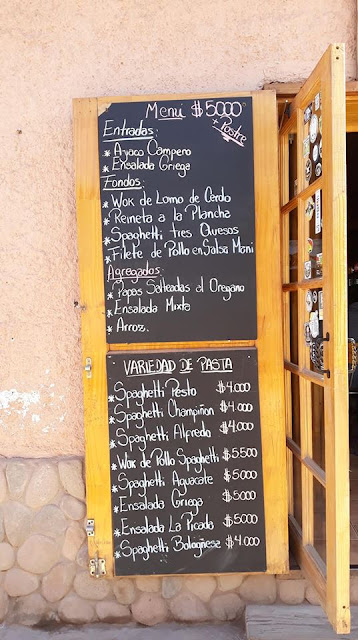 Menú $5000
+ Postre
Entradas:
* Ajiaco Campero
* Ensalada Griega
Fondos:
* Wok de Lomo de Cerdo
* Reineta a la Plancha
* Spaghetti tres Quesos
* Filete de Pollo en Salsa Mani
Agregados:
* Papas Salteadas al Oregano
* Ensalada Mixta
* Arroz.
VARIEDAD DE PASTA
* Spaghetti Pesto $4.000
* Spaghetti Champiñon $4.000
* Spaghetti Alfredo $4.000
* Wok de Pollo Spaghetti $5.500
* Spaghetti Aguacate $5000
* Ensalada Griega $5000
* Ensalada La Picada $5000
* Spaghetti Bologñesa $4.000